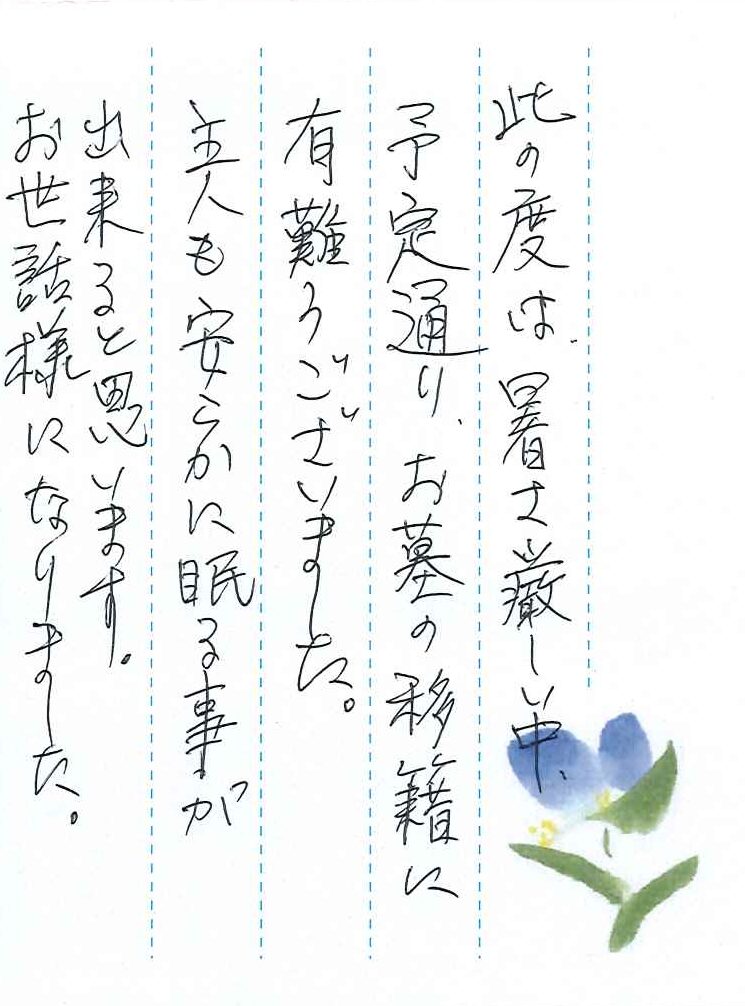 此の度は、暑さ厳しい中、
予定通り、お墓の移籍に
有難うございました。
主人も安らかに眠る事が
出来ると思います。
お世話様になりました。